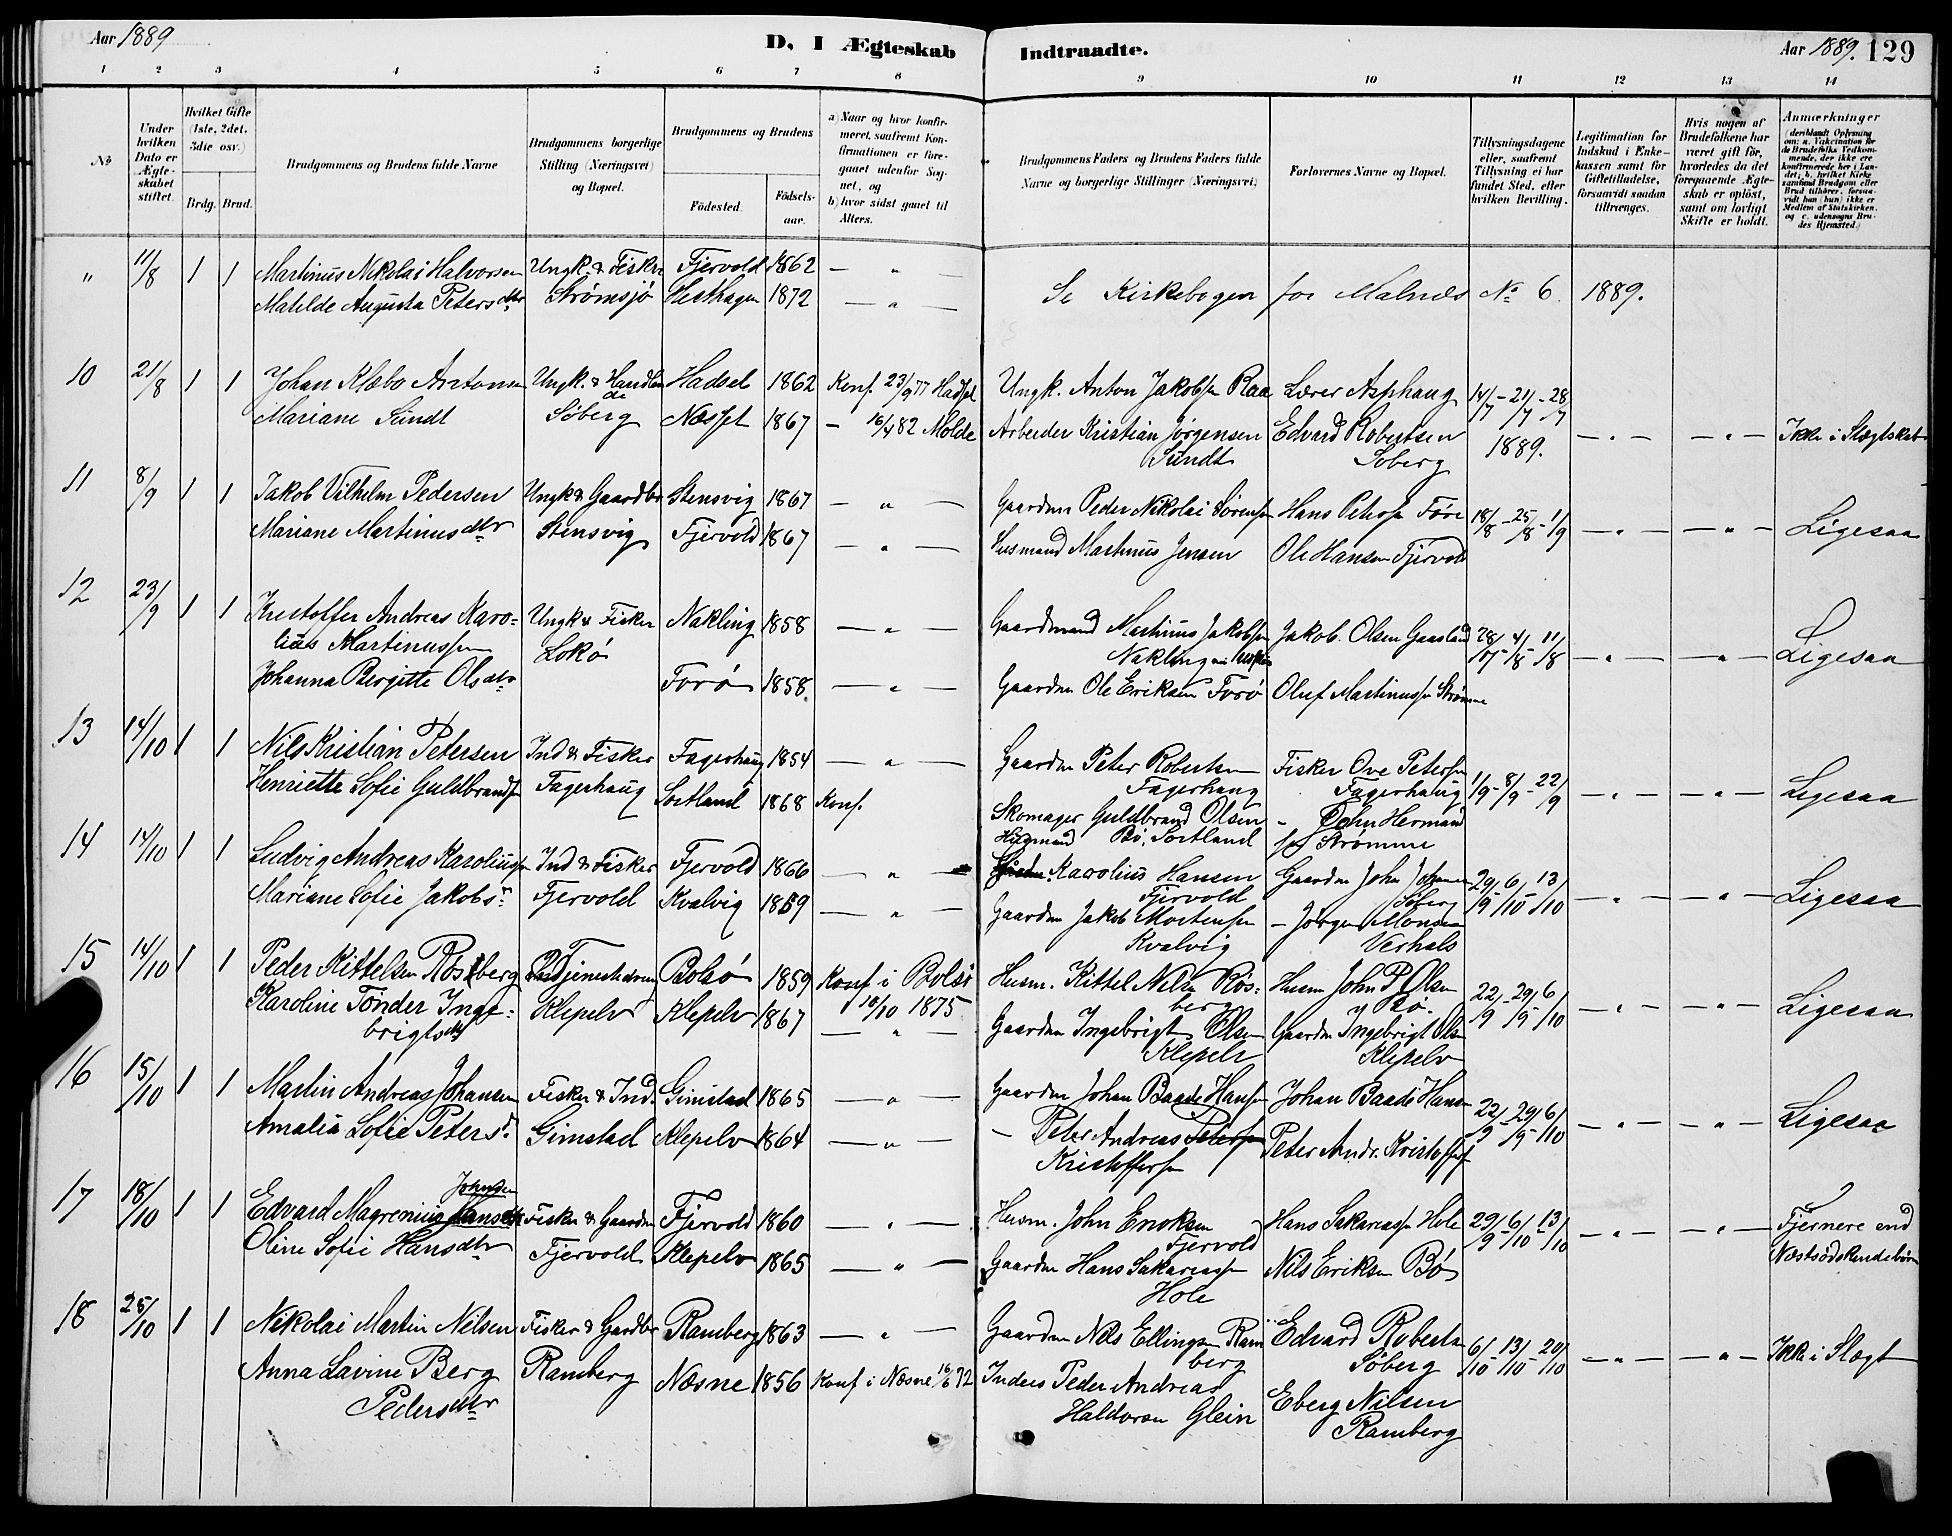 Aar 1889
D, I Ægteskab Indtraadte.
Aar 1889. 129
1 2 3 4 5 6 7 8 9 10 11 12 13 14
No
Under hvilken Dato er Ægte-skabet stiftet.
Hvilket Gifte (1ste, 2det, 3die osv.)
Brdg. Brud.
Brudgommens og Brudens fulde Navne
Brudgommens borgerlige Stilling (Næringsvei) og Bopæl.
Brudgommens og Brudens
Födested. Födsels-aar.
a) Naar og hvor konfir-meret, saafremt Kon-firmationen er fore-gaaet udenfor Sog-net, og
b) hvor sidst gaaet til Alters.
Brudgommens Faders og Brudens Faders fulde Navne og borgerlige Stillinger (Næringsvei)
Forlovernes Navne og Bopæl.
Tillysningsdagene eller, saafremt Tillysning ei har fundet Sted, efter hvilken Bevilling.
Legitimation for Indskud i Enke-kassen samt for Giftetilladelse, forsaavidt saadan tiltrænges.
Hvis nogen af Brudefolkene har været gift før, hvorledes da det foregaaende Ægte-skab er oplöst, samt om lovligt Skifte er holdt.
Anmærkninger
(deriblandt Oplysning om: a. Vakcination for de Brudefolks Vedkom-mende, der ikke ere konfirmerede her i Lan-det; b. hvilket Kirke-samfund Brudgom eller Brud tilhører, forsaa-vidt han (hun) ikke er Medlem af Statskirken, og c. udensogns Bru-des Hjemsted.)
" 11/8 1 1 Martinus Nikolai Halvorsen Ungk. & Fisker Fjervold 1862 — " —
Matilde Augusta Petersdtr Strømsjö Hesthagen 1872 — " —
Se Kirkebogen for Malnes No 6 1889.
10 21/8 1 1 Johan Klæbo Antonsen Ungk. & Handlende Hadsel 1862 Konf. 23/9 77 Hadsel Ungk. Anton Jakobsen Raa Lærer Asphaug 14/7 - 21/7 - 28/7
Mariane Sundt Söberg Næsset 1867 - 16/4 82 Molde Arbeider Kristian Jörgensen Sundt Edvard Robertsen Söberg 1889. — " — — " — Ikke i Slægtskab
11 8/9 1 1 Jakob Vilhelm Pedersen Ungk & Gaardbr Stensvig 1867 — " — Gaardm Peder Nikolai Sörensen Hans Petersen Före 18/8 - 25/8 - 1/9
Mariane Martinusdtr Stensvig Fjervold 1867 — " — Husmand Martinus Jensen Ole Hansen Fjervold — " — — " — Ligesaa
12 23/9 1 1 Kristoffer Andreas Karo= Ungk & Fisker Nakling 1858 — " — Gaardmand Martinus Jakobsen Jakob Olsen Gaasland 28/7 - 4/8 - 11/8
lius Martinussen Lokö Nakling — " — — " — Ligesaa
Johanna Bergitte Olsdtr Forö 1858. — " — Gaardm Ole Eriksen Forö Oluf Martinussen Strømme
13 14/10 1 1 Nils Kristian Petersen Ind & Fisker Fagerhaug 1854 — " — Gaardm Peter Robertsen Fagerhaug Fisker Ove Petersen Fagerhaug 1/9 - 8/9 - 22/9
Henriette Sofie Guldbrandsen Fagerhaug Sortland 1868 Konf. Skomager Guldbrand Olsen Bö, Sortland - John Hermandsen Strømme — " — — " — Ligesaa
14 14/10 1 1 Ludvig Andreas Karoliussen Ind & Fisker Fjervold 1866 — " — Husmand Karolius Hansen Fjervold Gaardm John Johansen Söberg 29/9 - 6/10 - 13/10
Mariane Sofie Jakobsdr Fjervold Kvalvig 1859 — " — Gaardm Jakob Mortensen Kvalvig - Jörgen Monsen Verhals — " — — " — Ligesaa
15 14/10 1 1 Peder Kittelsen Rösberg Tjenestedreng Bolsö 1859 Konf. i Bolsö 10/10 1875 Husm. Kittel Nilsen Rös=berg Husm John P Olsen Bö. 22/9 - 29/9 - 6/10
Karoline Tönder Inge=brigtsdtr Klepelv Klepelv 1867 — " — Gaardm Ingebrigt Olsen Klepelv Gaardm Ingebrigt Olsen Klepelv — " — — " — Ligesaa
16 15/10 1 1 Martin Andreas Johansen Fisker & Ind. Gimstad 1865 — " — Gaardm Johan Baade Hansen Johan Baade Hansen 22/9 - 29/9 - 6/10
Amalia Sofie Petersd. Gimstad Klepelv 1864 — " — - Peter Andreas Petersen Kristoffersen Peter Andr. Kristoffersen — " — — " — Ligesaa
17 18/10 1 1 Edvard Magrenius Hansen Johnsen Fisker & Gaardm Fjervold 1860 — " — Husm. John Enoksen Fjervold Hans Sakariassen Hole 29/9 - 6/10 - 13/10 — " — — " — Fjernere end
Oline Sofie Hansdtr Fjervold Klepelv 1865 — " — Gaardm Hans Sakariassen Hole Nils Eriksen Bö Næstsödskendebörn
18 25/10 1 1 Nikolai Martin Nilsen Fisker & Gardbr Ramberg 1863 — " — Gaardm Nils Ellingsen Ramberg Edvard Robertsen Söberg 6/10 - 13/10 - 20/10 — " — — " — Ikke i Slægt
Anna Lavine Berg Ramberg Næsne 1856 Konf i Næsne 16/6 72 Inders Peder Andreas Haldorsen Glein Eberg Nilsen Ramberg
Pedersdtr